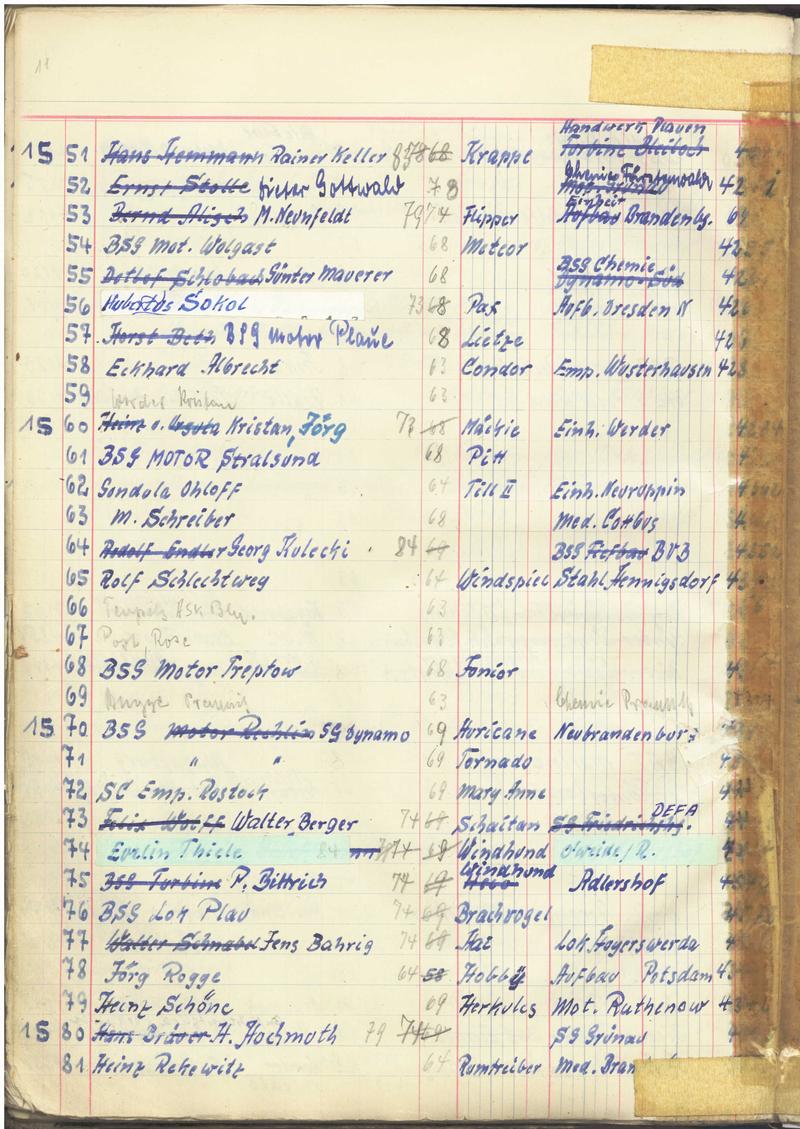 Handwerk Plauen
15 51 Hans Hemmann Rainer Keller 68 Krappe
52 Ernst Stolle Dieter Gottwald 78 42
Einheit
53 Bernd Alisch M. Neunfeldt 79 74 Flipper Aufbau Brandenbg. 69
54 BSG Mot. Wolgast 68 Meteor 42
BSG Chemie
55 Detlef Schlobach Günter Mauerer 68 Dynamo Süd 42
56 Hubertus Sokol 73 68 Pax Aufb. Dresden N 42
57 Horst Beth BSG Motor Plaue 68 Lietze 42
58 Eckhard Albrecht 63 Condor Emp. Wusterhausen 42
59 Werder Kristan 63
15 60 Heinz u. Ursula Kristan, Jörg 73 68 Mäckie Einh. Werder 42
61 BSG MOTOR Stralsund 68 Pitt
62 Gundula Ohloff 64 Till II Einh. Neuruppin
63 M. Schreiber 68 Med. Cottbus
64 Rudolf Endler Georg Kulecki 84 69 BSG Tiefbau BVB
65 Rolf Schlechtweg 64 Windspiel Stahl Hennigsdorf 43
66 ASK Bln. 63
67 Post, Rose 63
68 BSG Motor Treptow 68 Junior
69 63 Chemie
15 70 BSG Motor Rechlin SG Dynamo 69 Huricane Neubrandenburg
71 " " 69 Tornado
72 SC Emp. Rostock 69 Mary Anne
DEFA
73 Felix Wolff Walter Berger 74 69 Schaitan SG Friedrichshg.
74 Evelin Thiele 84 74 69 Windhund
Windhund
75 BSG Turbine P. Bittrich 74 69 Adlershof
76 BSG Lok Plau 74 69 Brachvogel
77 Walter Schnabel Jens Bahrig 74 69 Kaz Lok Hoyerswerda
78 Jörg Rogge 64 58 Hobby Aufbau Potsdam
79 Heinz Schöne 69 Herkules Mot. Rathenow
15 80 Hans Bräuer H. Hochmuth 79 74 69 SG Grünau
81 Heinz Rekewitz 64 Rumtreiber Med. Bran